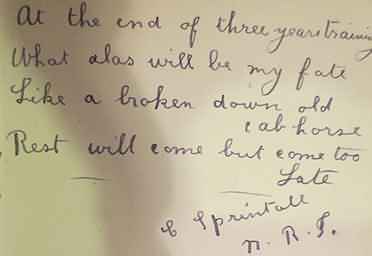 At the end of three years training
What alas will be my fate
Like a broken down old
cab horse
Rest will come but come too
Late
N. R. I.